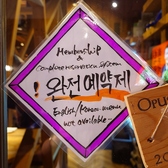 Membership
&
Complete reservation system
! 완전예약제
English/Korean menu
are available~
OPUS